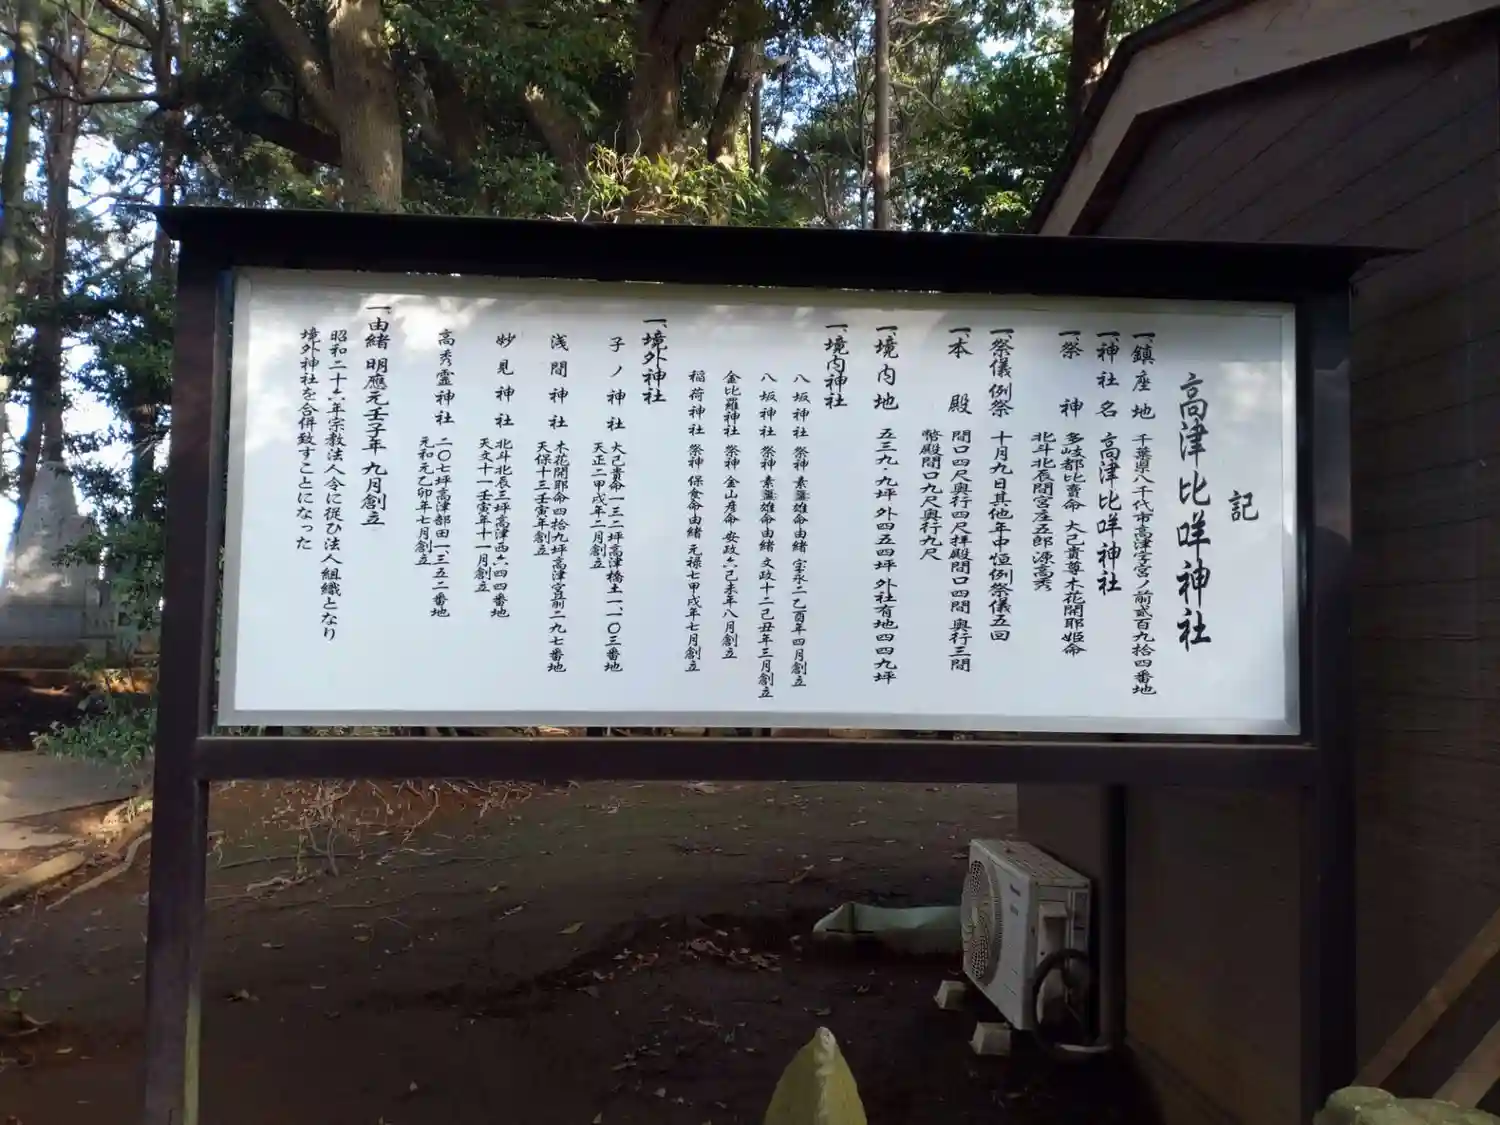 記
高津比咩神社
一、鎮座地 千葉県八千代市高津字宮ノ前貳百九拾四番地
一、神社名 高津比咩神社
一、祭神 多岐都比賣命 大己貴尊木花開耶姫命
北斗北辰間宮左五郎源高秀
一、祭儀例祭 十月九日其他年中恒例祭儀五回
一、本殿 間口四尺奥行四尺拝殿間口四間奥行三間
幣殿間口九尺奥行九尺
一、境内地 五三九・九坪 外四五四坪 外社有地四四九坪
一、境内神社
八坂神社 祭神 素盞雄命由緒 宝永二乙酉年四月創立
八坂神社 祭神 素盞雄命由緒 文政十二己丑年三月創立
金比羅神社 祭神 金山彦命 安政六己未年八月創立
稲荷神社 祭神 保食命由緒 元禄七甲戌年七月創立
一、境外神社
子ノ神社 大己貴命一三二坪高津橋土一一〇三番地
天正二甲戌年二月創立
浅間神社 木花開耶命四拾九坪高津宮前二九七番地
天保十三壬寅年創立
妙見神社 北斗北辰三坪高津西六四四番地
天文十一壬寅年十一月創立
高秀霊神社 二〇七坪高津部田一、三五二番地
元和元乙卯年七月創立
一、由緒 明應元壬子年 九月創立
昭和二十六年宗教法人令に従ひ法人組織となり
境外神社を合併致すことになった